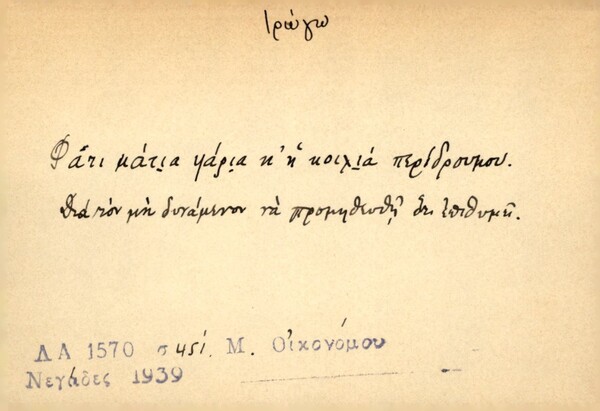 τρώγω
Φᾶτι μάτια ψάρια κ' ἡ κοιλιά περίδρουμου.
Διά τόν μή δυνάμενον νά προμηθευθῇ ὅτι ἐπιθυμεῖ.
ΛΑ 1570 σ 451. Μ. Οἰκονόμου
Νεγάδες 1939